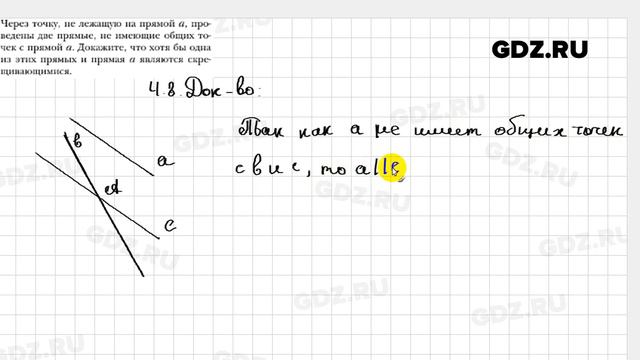 Через точку, не лежащую на прямой a, про-
ведены две прямые, не имеющие общих то-
чек с прямой a. Докажите, что хотя бы одна
из этих прямых и прямая a являются скре-
щивающимися.
GDZ.RU
4.8. Док-во:
Так как a не имеет общих точек
с в и с, то a||в,
в
a
A
c
GDZ.RU
GDZ.RU
GDZ.RU
GDZ.RU
GDZ.RU
GDZ.RU
GDZ.RU